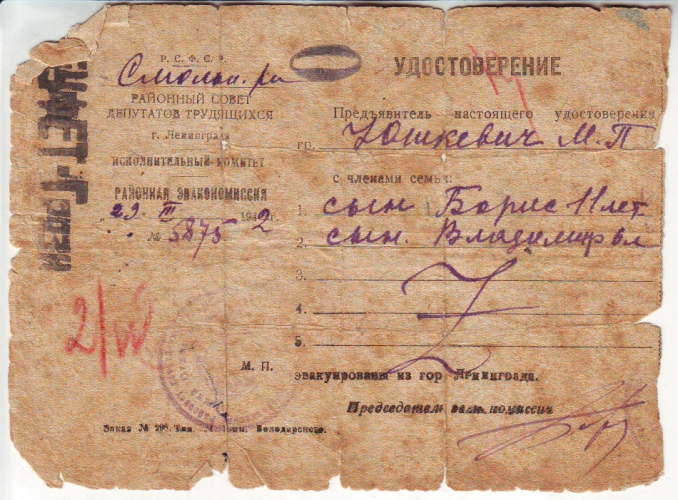 Р. С. Ф. С. Р.
Смольн. р-н
РАЙОННЫЙ СОВЕТ
ДЕПУТАТОВ ТРУДЯЩИХСЯ
г. Ленинграда
ИСПОЛНИТЕЛЬНЫЙ КОМИТЕТ
РАЙОННАЯ ЭВАКОКОМИССИЯ
"29" III 1942 г.
№ 5875
2/IV
М. П.
Заказ № 298. Тип. Володарского.
УДОСТОВЕРЕНИЕ
Предъявитель настоящего удостоверения
гр. Юшкевич М.П
с членами семьи:
1. сын Борис 11 лет
2. сын. Владимир 6 л
3.
4.
5.
эвакуированы из гор. Ленинграда.
Председатель эвак. комиссии